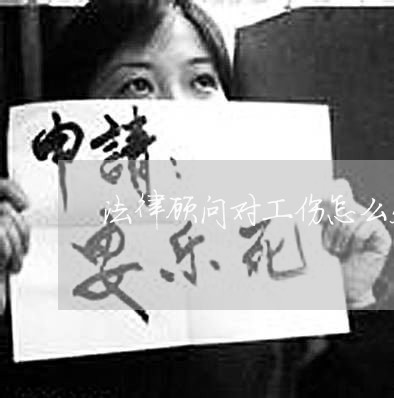 申請：
法律顾问对工伤怎么
安乐死